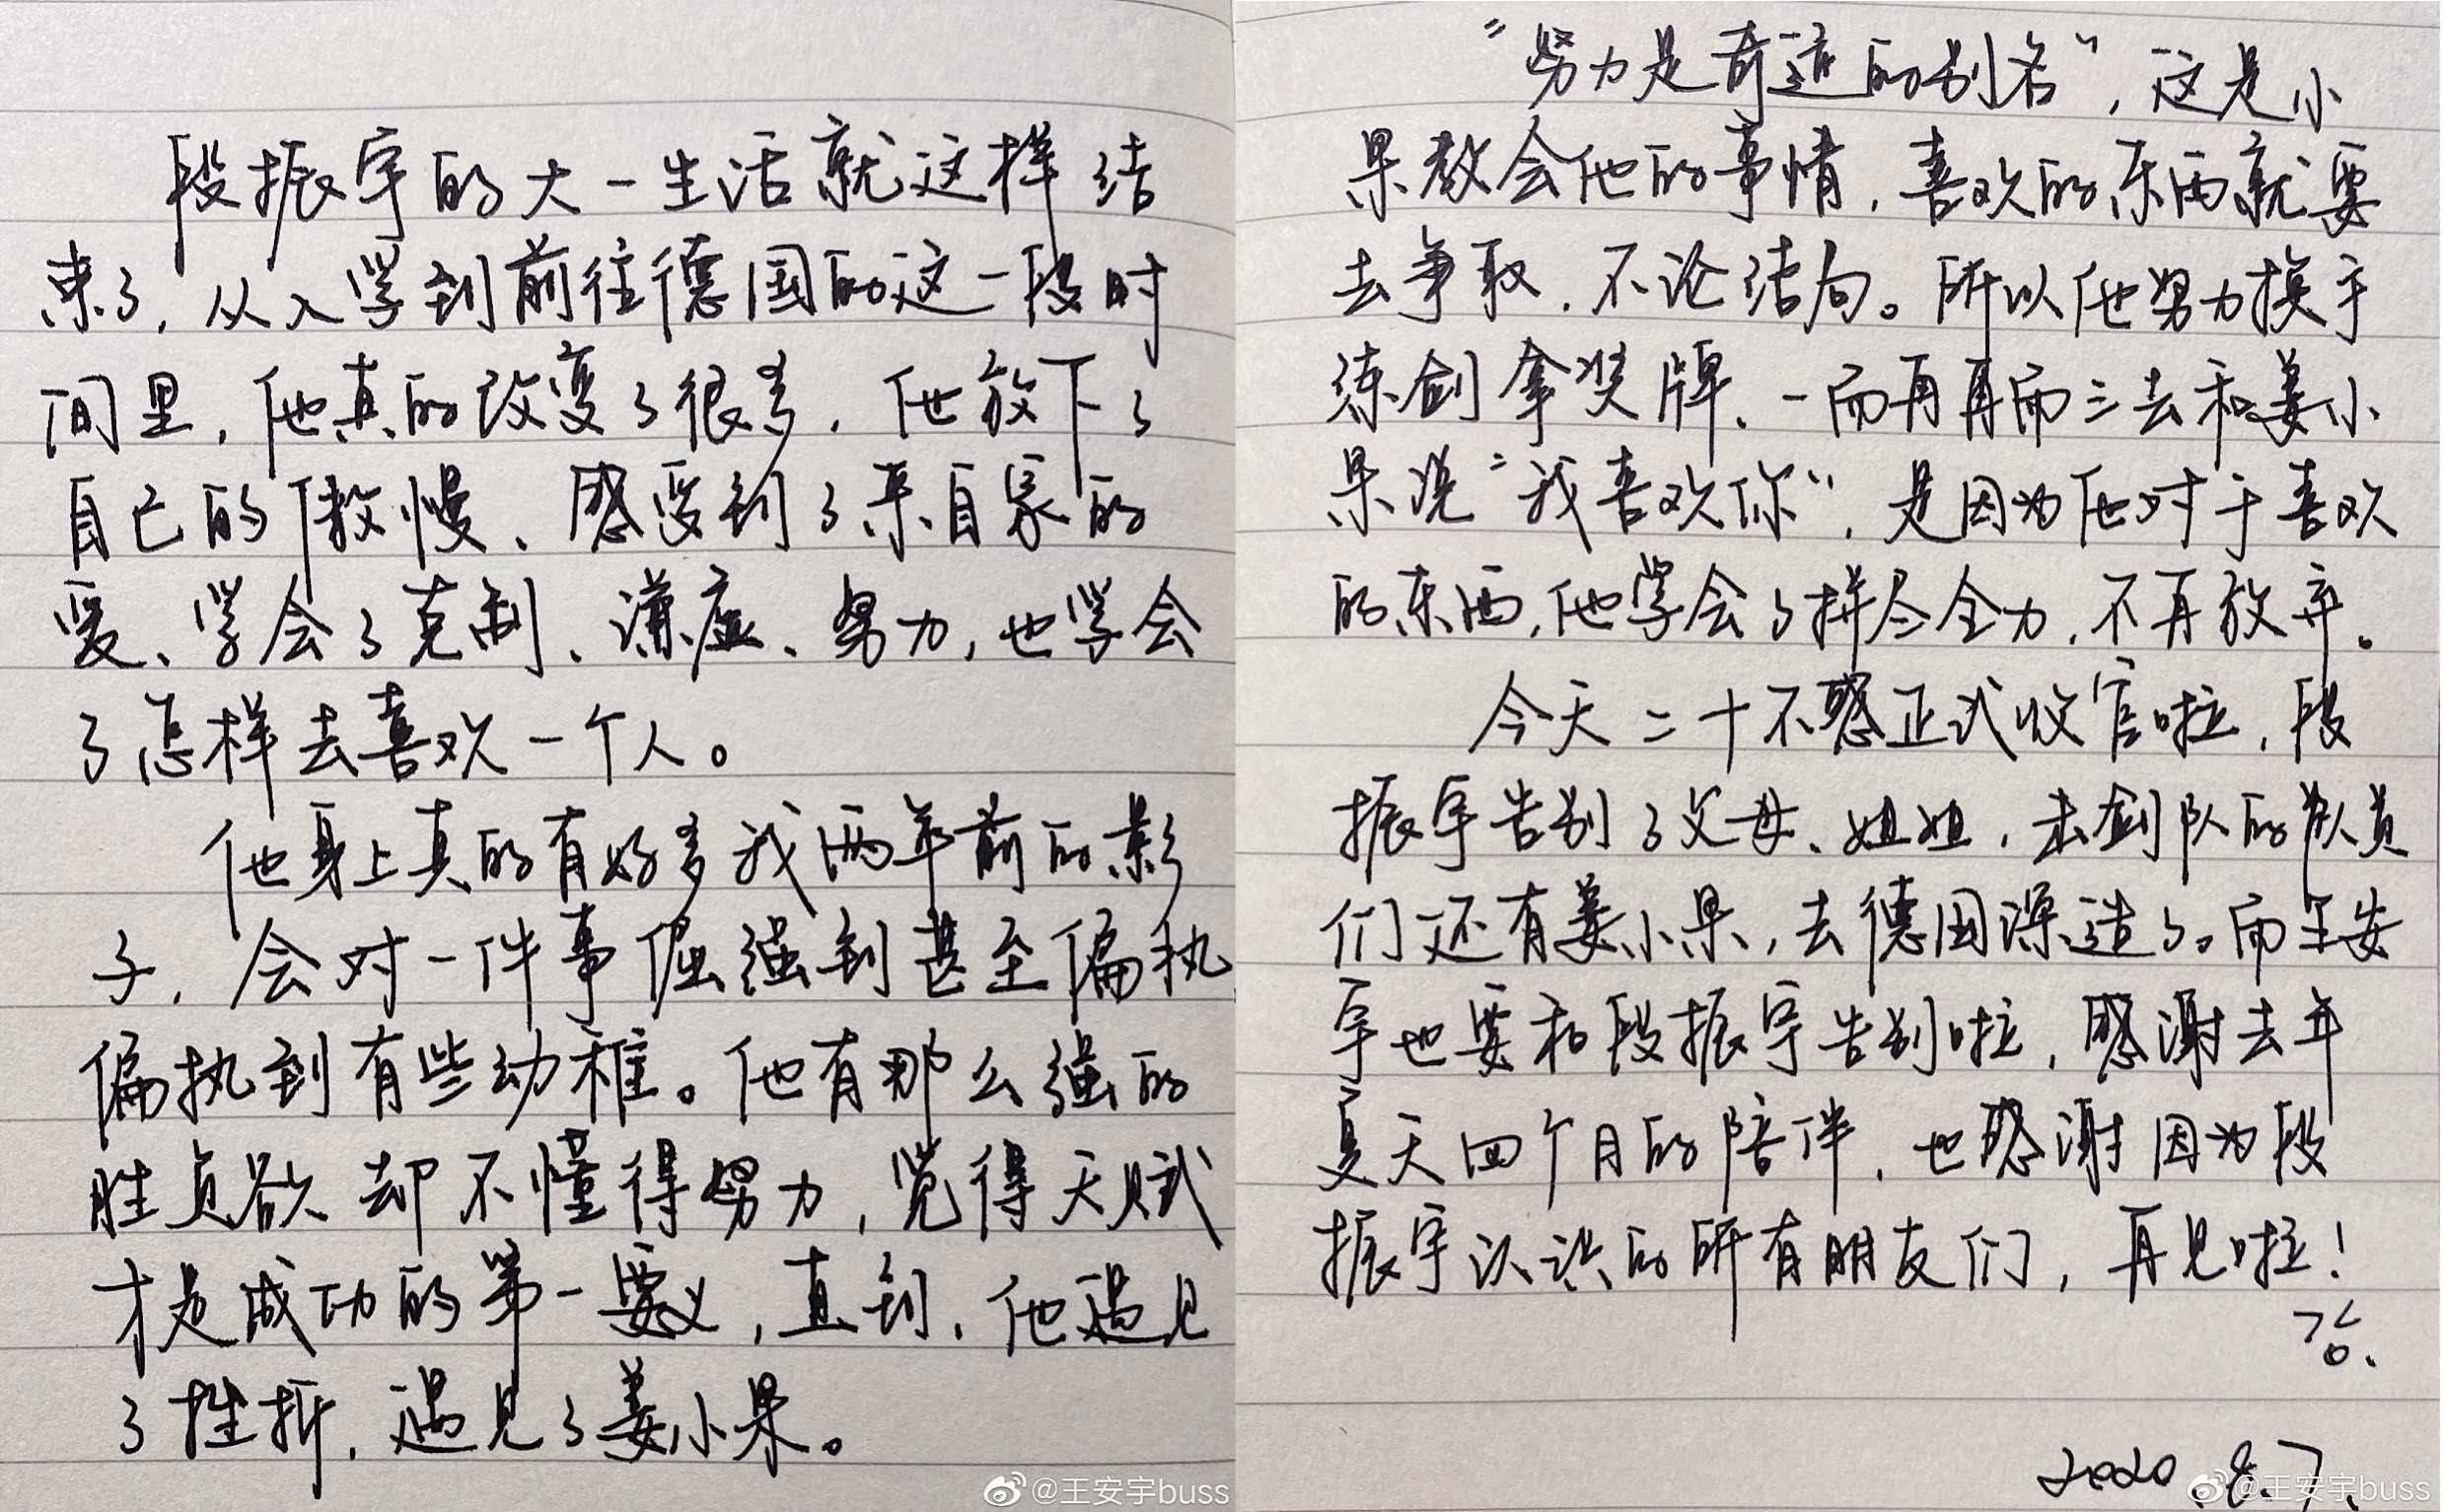 段振宇的大一生活就这样结
束了,从入学到前往德国的这一段时
间里,他真的改变了很多,他放下了
自己的傲慢、感受到了来自家的
爱、学会了克制、谦虚、努力,也学会
了怎样去喜欢一个人。
他身上真的有好多我两年前的影
子,会对一件事倔强到甚至偏执
偏执到有些幼稚。他有那么强的
胜负欲却不懂得努力,觉得天赋
才是成功的第一要义,直到,他遇见
了挫折,遇见了姜小果。
@王安宇buss
“努力是奇迹的别名”,这是小
果教会他的事情,喜欢的东西就要
去争取,不论结局。所以他努力换手
练剑拿奖牌、一而再再而三去和姜小
果说“我喜欢你”,是因为他对于喜欢
的东西,他学会了拼尽全力,不再放弃。
今天二十不惑正式收官啦,段
振宇告别了父母、姐姐,击剑队的队员
们还有姜小果,去德国深造了。而王安
宇也要和段振宇告别啦,感谢去年
夏天四个月的陪伴,也感谢因为段
振宇认识的所有朋友们,再见啦!
2020.8.7.
@王安宇buss